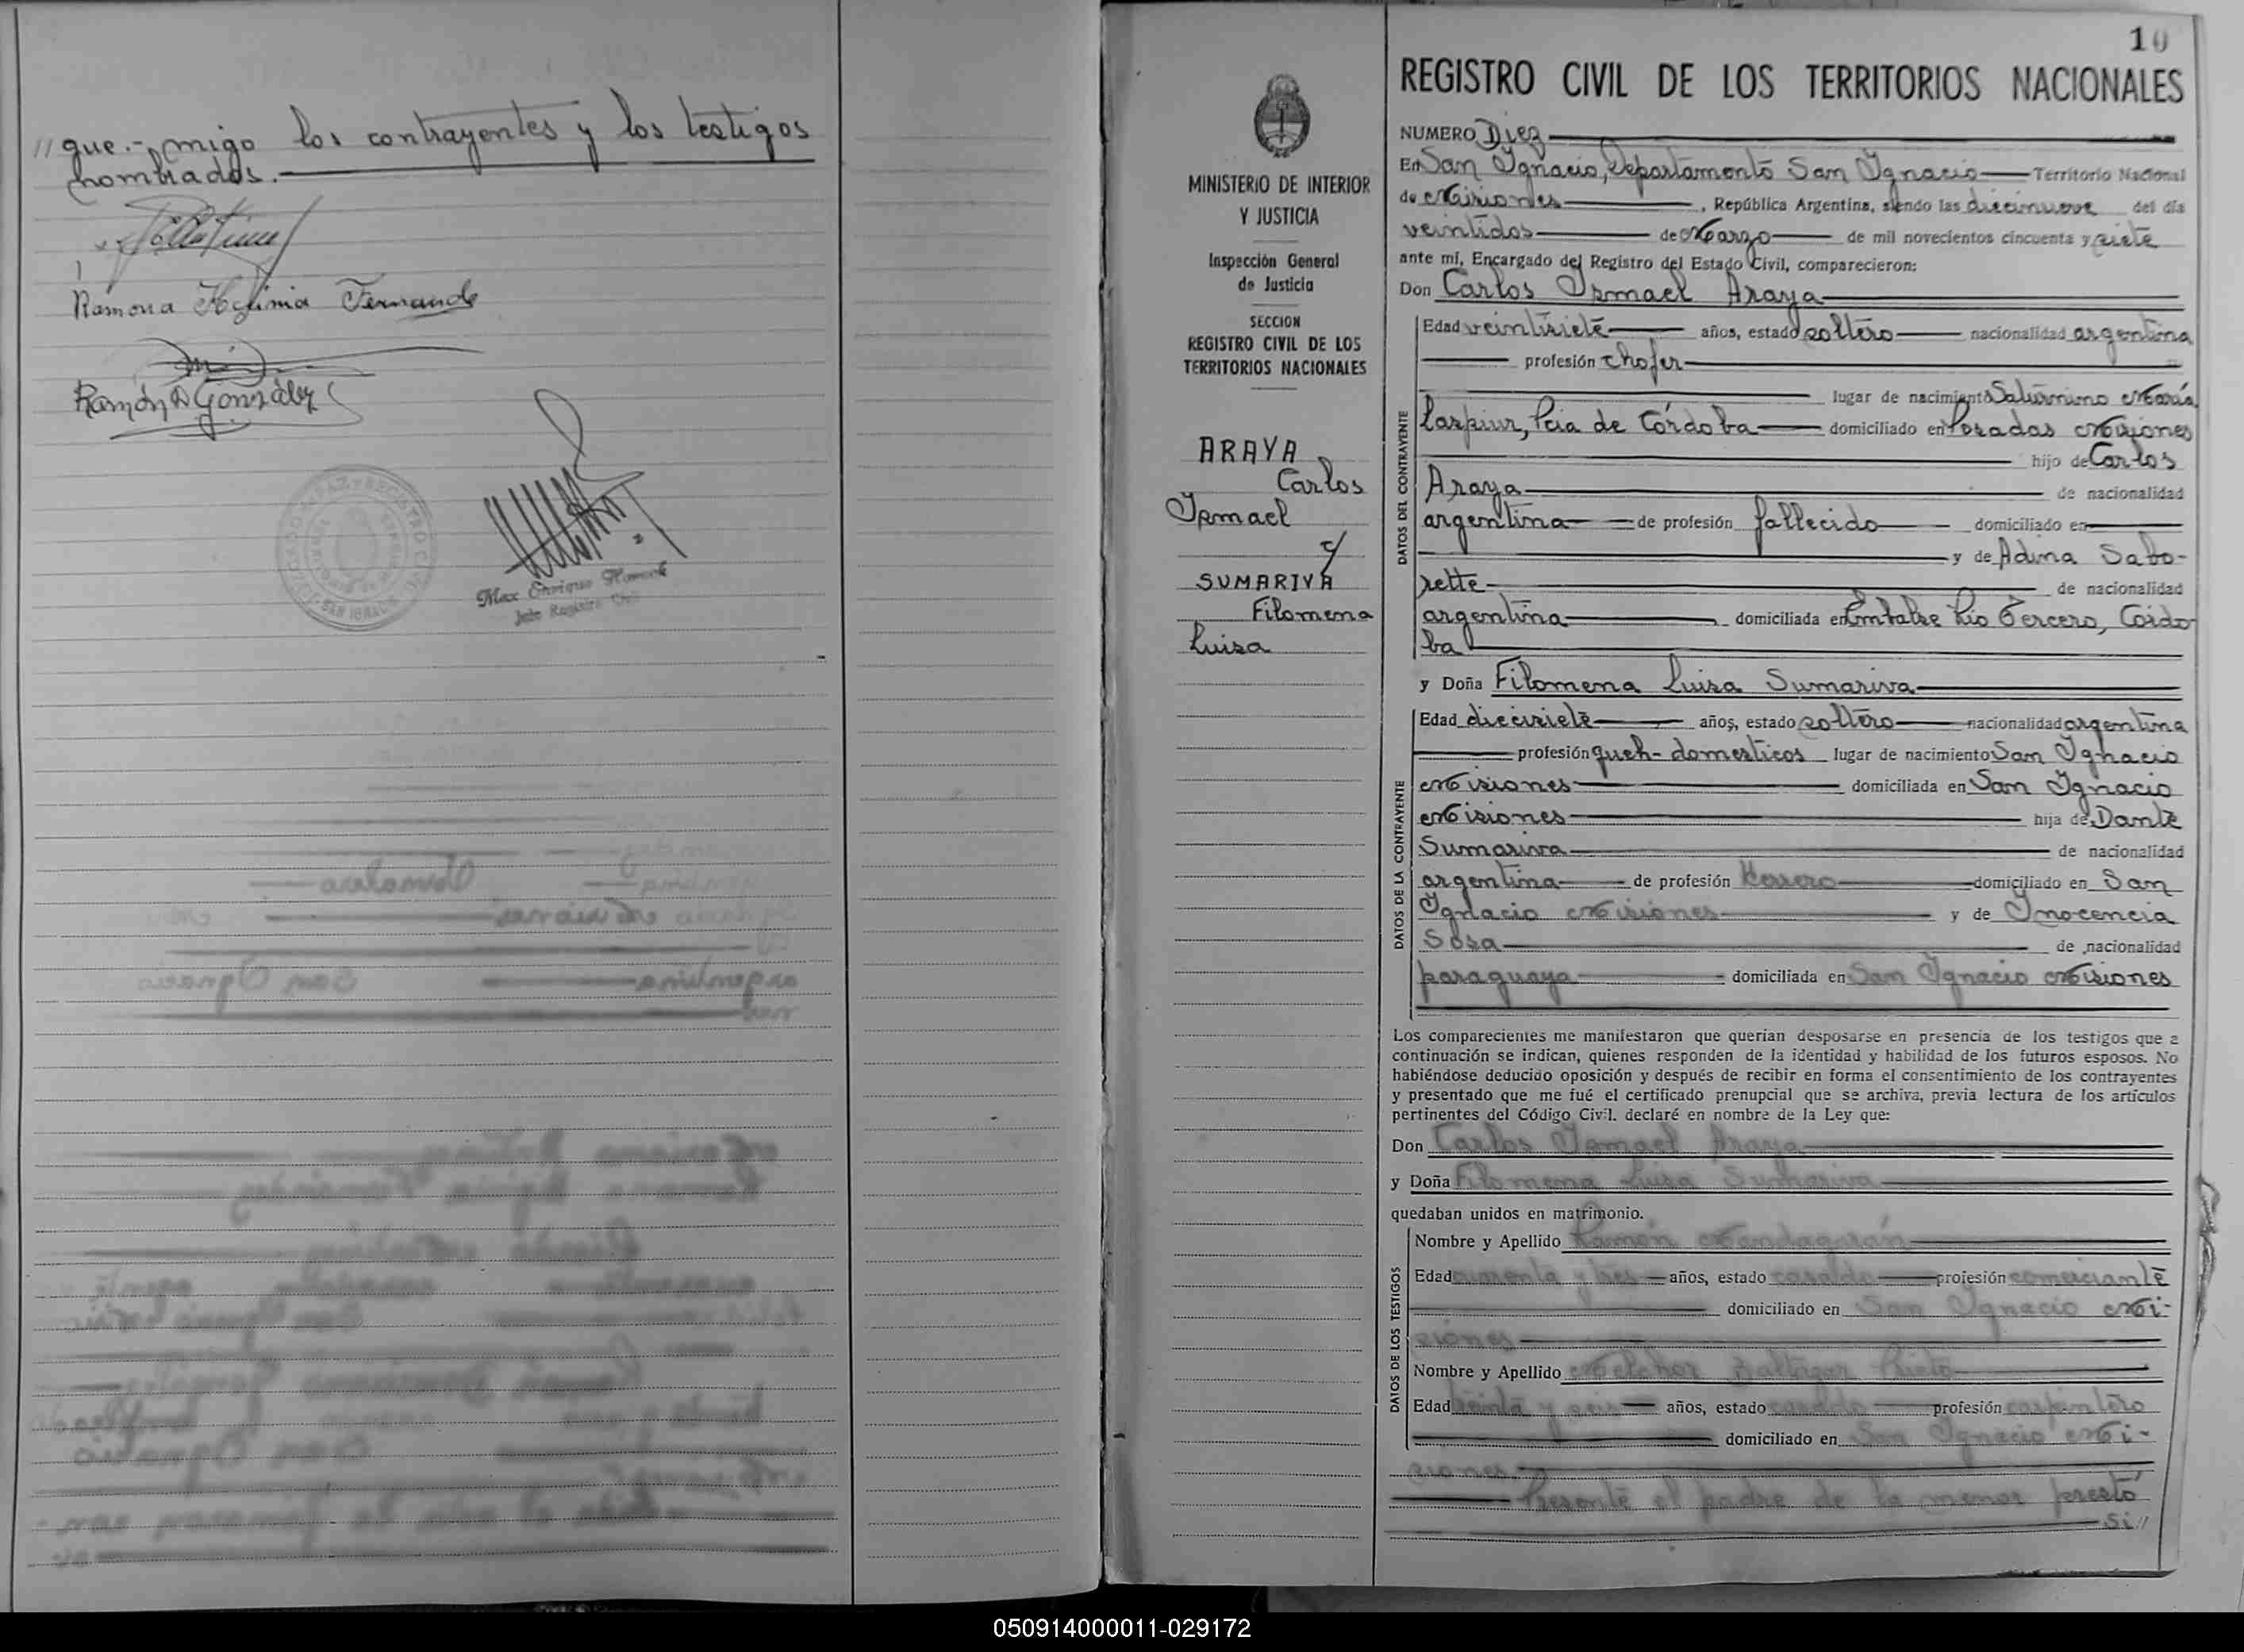 // que.- migo los contrayentes y los testigos
nombrados.
Ramona Higinia Fernande
Ramón D González
PAZ Y REGISTRO CIVIL
SAN IGNACIO
Max Enrique
Jefe Registro Civil
10
REGISTRO CIVIL DE LOS TERRITORIOS NACIONALES
MINISTERIO DE INTERIOR
Y JUSTICIA
Inspección General
de Justicia
SECCION
REGISTRO CIVIL DE LOS
TERRITORIOS NACIONALES
ARAYA
Carlos
Ismael
y
SUMARIVA
Filomena
Luisa
NUMERO Diez
En San Ignacio, Departamento San Ignacio Territorio Nacional
de Misiones, República Argentina, siendo las diecinueve del día
veintidos de Marzo de mil novecientos cincuenta y siete
ante mí, Encargado del Registro del Estado Civil, comparecieron:
Don Carlos Ismael Araya
DATOS DEL CONTRAYENTE
Edad veintisiete años, estado soltero nacionalidad argentina
profesión chofer
lugar de nacimiento Saturnino María
Laspiur, Pcia de Córdoba domiciliado en Posadas Misiones
hijo de Carlos
Araya de nacionalidad
argentina de profesión fallecido domiciliado en
y de Adina Sabo-
rette de nacionalidad
argentina domiciliada en Embalse Río Tercero, Córdo
ba
y Doña Filomena Luisa Sumariva
DATOS DE LA CONTRAYENTE
Edad diecisiete años, estado soltero nacionalidad argentina
profesión queh- domesticos lugar de nacimiento San Ignacio
Misiones domiciliada en San Ignacio
Misiones hija de Dante
Sumariva de nacionalidad
argentina de profesión Herrero domiciliado en San
Ignacio Misiones y de Inocencia
Sosa de nacionalidad
paraguaya domiciliada en San Ignacio Misiones
Los comparecientes me manifestaron que querían desposarse en presencia de los testigos que a
continuación se indican, quienes responden de la identidad y habilidad de los futuros esposos. No
habiéndose deducido oposición y después de recibir en forma el consentimiento de los contrayentes
y presentado que me fué el certificado prenupcial que se archiva, previa lectura de los artículos
pertinentes del Código Civil. declaré en nombre de la Ley que:
Don Carlos Ismael Araya
y Doña Filomena Luisa Sumariva
quedaban unidos en matrimonio.
DATOS DE LOS TESTIGOS
Nombre y Apellido Ramón Mondagarán
Edad cuarenta y tres años, estado casado profesión comerciante
domiciliado en San Ignacio Mi-
siones
Nombre y Apellido Melchor Baltazar Prieto
Edad treinta y seis años, estado casado profesión carpintero
domiciliado en San Ignacio Mi-
siones.
Presente el padre de la menor prestó
su//
050914000011-029172